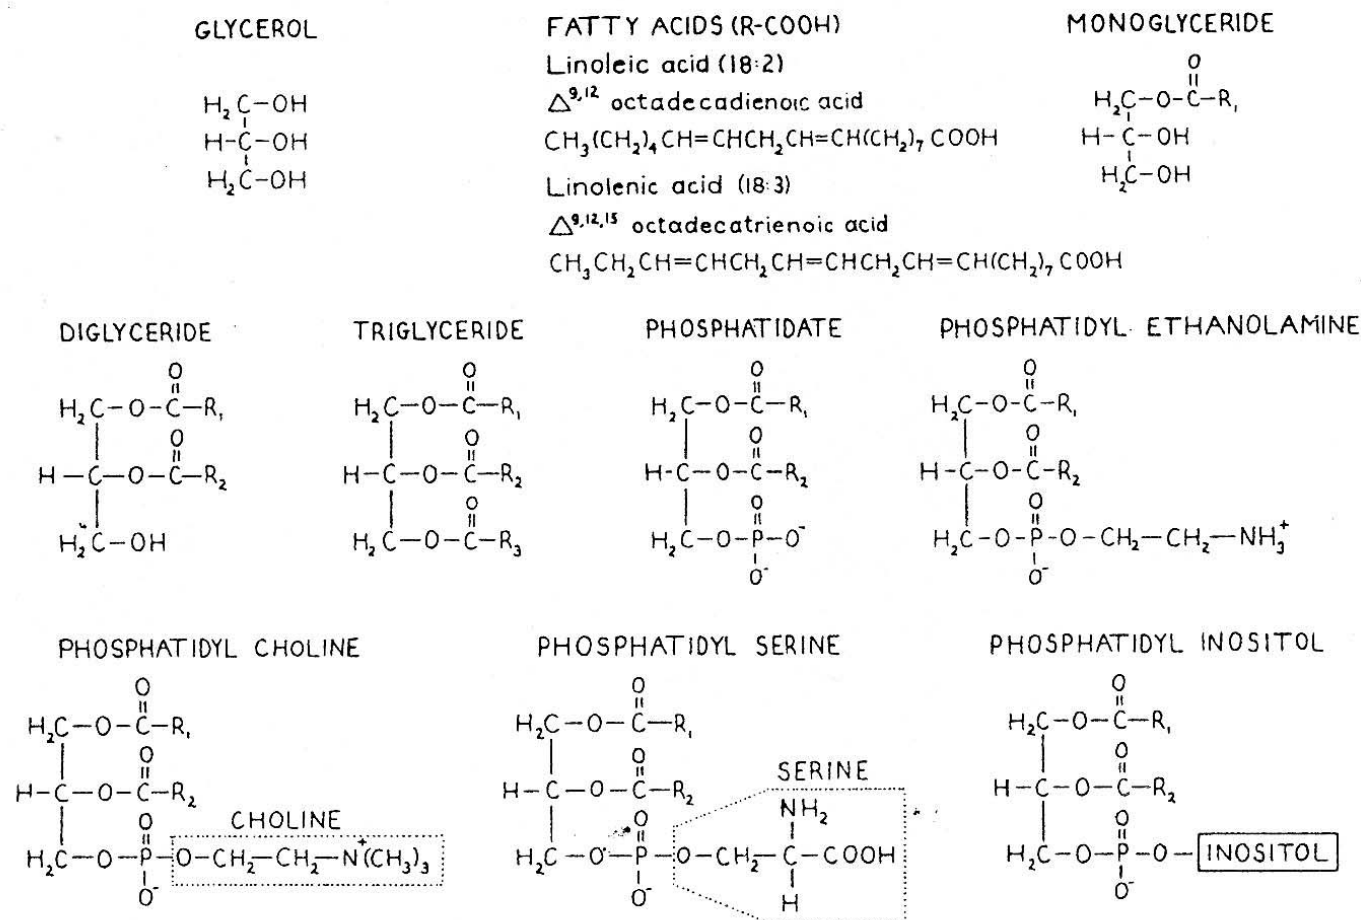 GLYCEROL
H₂C–OH
H–C–OH
H₂C–OH
FATTY ACIDS (R-COOH)
Linoleic acid (18:2)
△⁹,¹² octadecadienoic acid
CH₃(CH₂)₄CH=CHCH₂CH=CH(CH₂)₇COOH
Linolenic acid (18:3)
△⁹,¹²,¹⁵ octadecatrienoic acid
CH₃CH₂CH=CHCH₂CH=CHCH₂CH=CH(CH₂)₇COOH
MONOGLYCERIDE
O
H₂C–O–C–R₁
H–C–OH
H₂C–OH
DIGLYCERIDE
O
H₂C–O–C–R₁
O
H–C–O–C–R₂
H₂C–OH
TRIGLYCERIDE
O
H₂C–O–C–R₁
O
H–C–O–C–R₂
O
H₂C–O–C–R₃
PHOSPHATIDATE
O
H₂C–O–C–R₁
O
H–C–O–C–R₂
O
H₂C–O–P–O⁻
O⁻
PHOSPHATIDYL ETHANOLAMINE
O
H₂C–O–C–R₁
O
H–C–O–C–R₂
O
H₂C–O–P–O–CH₂–CH₂–NH₃⁺
O⁻
PHOSPHATIDYL CHOLINE
O
H₂C–O–C–R₁
O
H–C–O–C–R₂
O
CHOLINE
H₂C–O–P–O–CH₂–CH₂–N⁺(CH₃)₃
O⁻
PHOSPHATIDYL SERINE
O
H₂C–O–C–R₁
O
H–C–O–C–R₂
SERINE
O
NH₂
H₂C–O–P–O–CH₂–C–COOH
O⁻
H
PHOSPHATIDYL INOSITOL
O
H₂C–O–C–R₁
O
H–C–O–C–R₂
O
H₂C–O–P–O–INOSITOL
O⁻